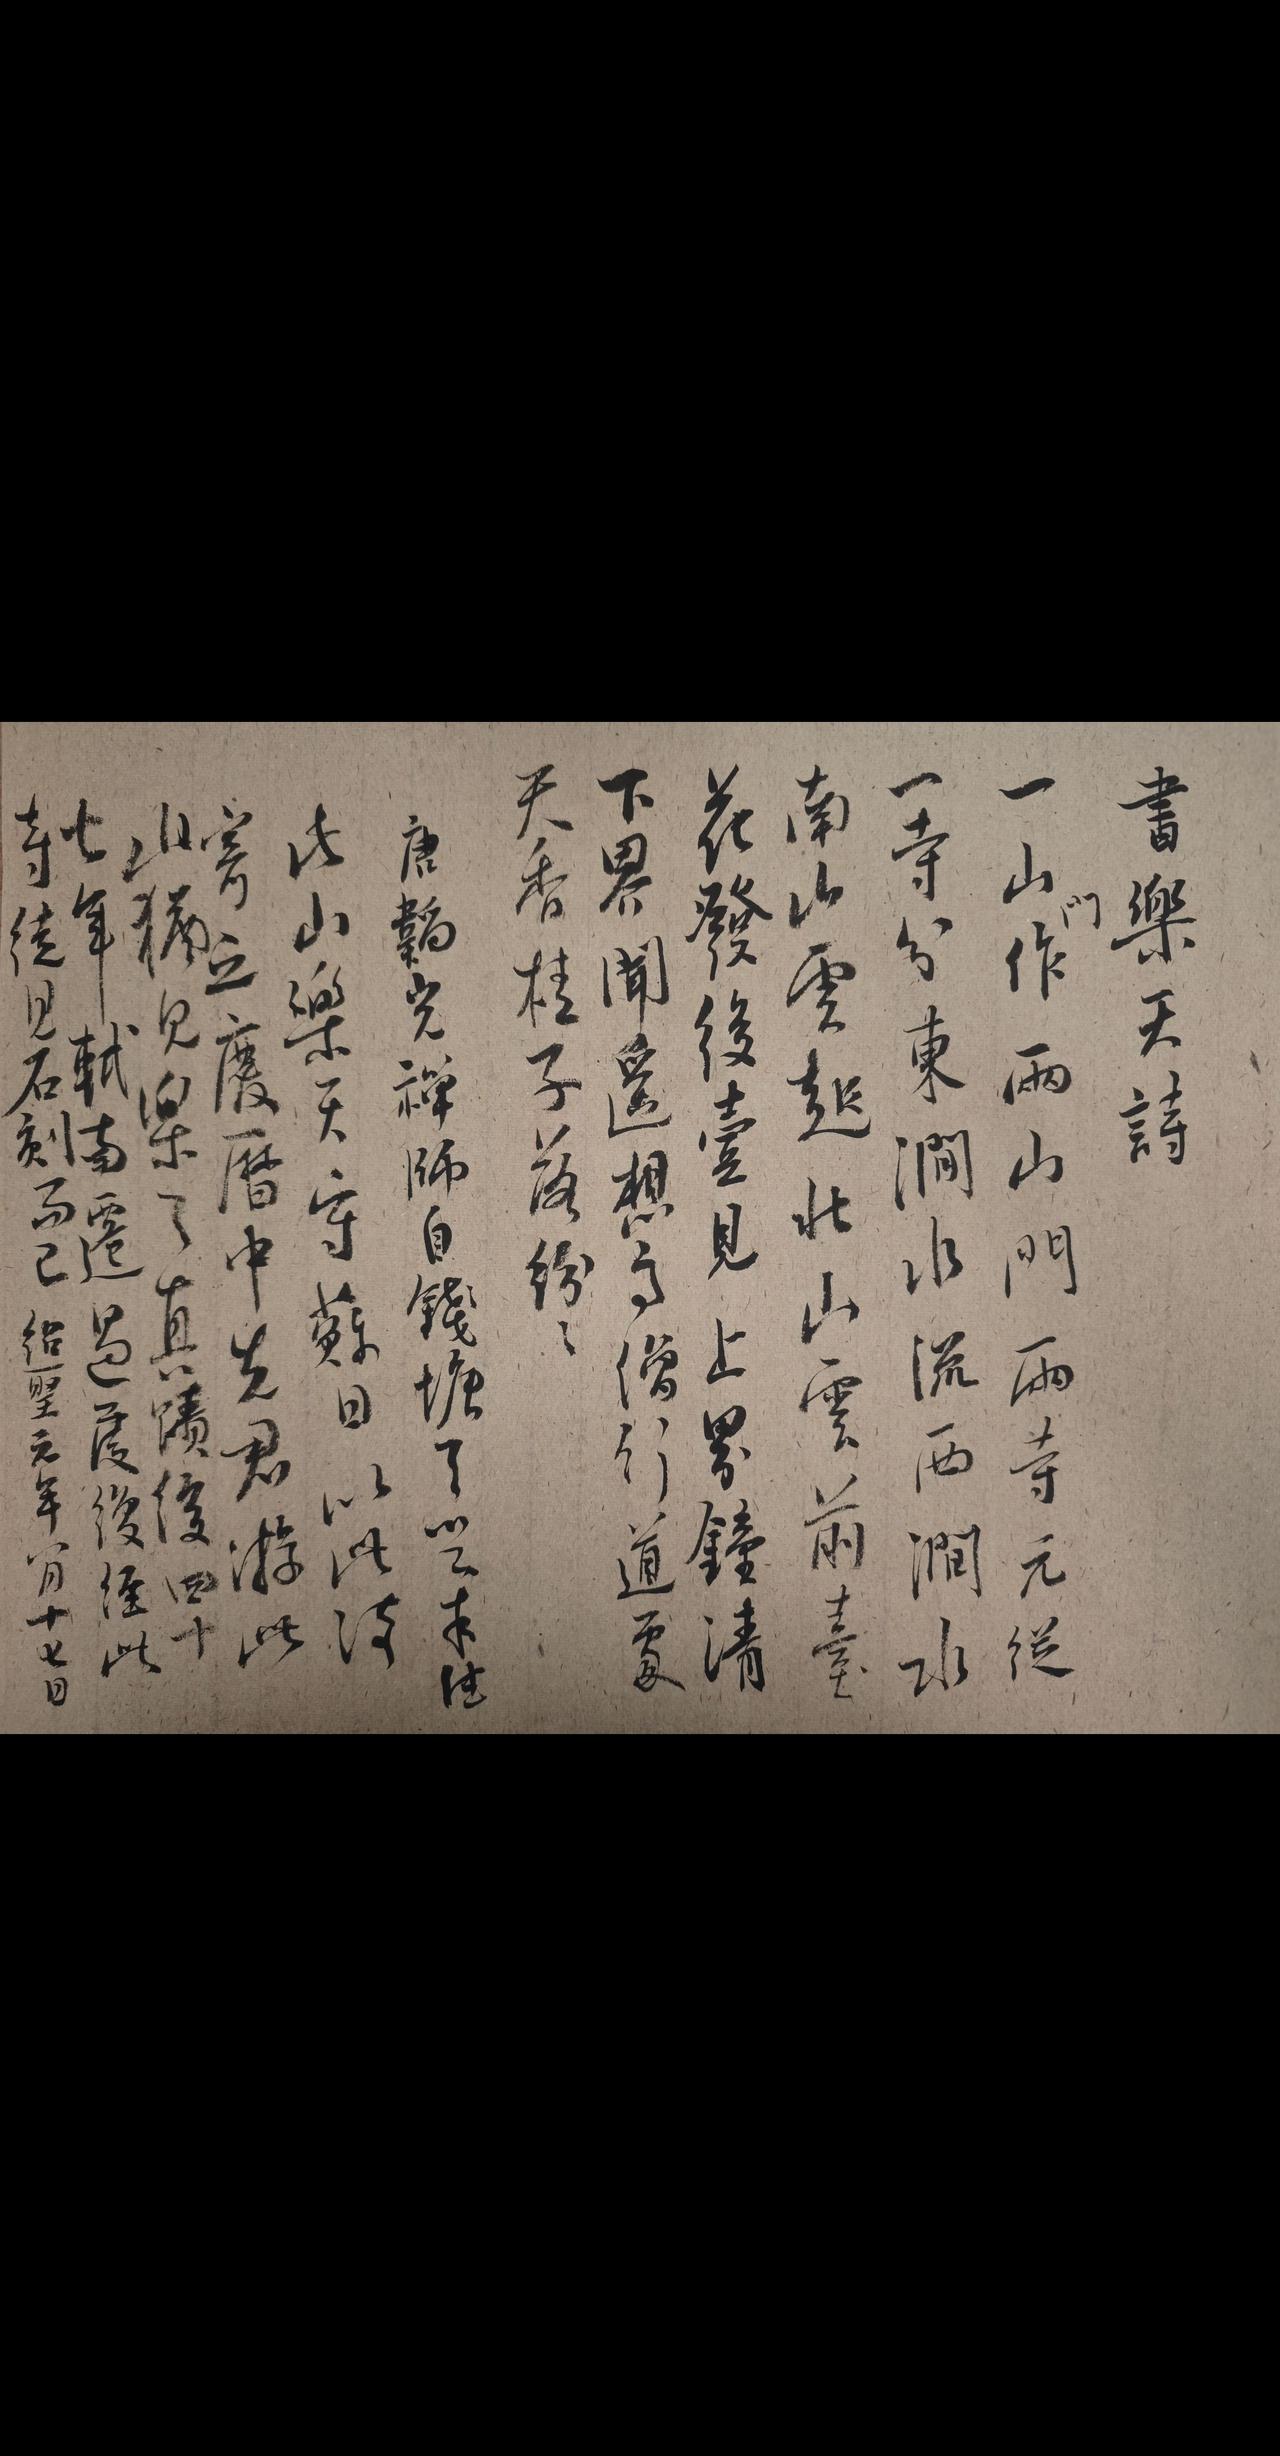 書樂天詩
一山門作兩山門兩寺元從
一寺分東澗水流西澗水
南山雲起北山雲前臺
花發後臺見上界鐘清
下界聞遥想高僧行道處
天香桂子落紛〻
唐韜光禪師自錢塘天竺来住
此山樂天守蘇日以此詩
寄之慶曆中先君游此
山猶見樂天真蹟後四十
七年軾南遷過虔復經此
寺徒見石刻而已 紹聖元年八月十七日